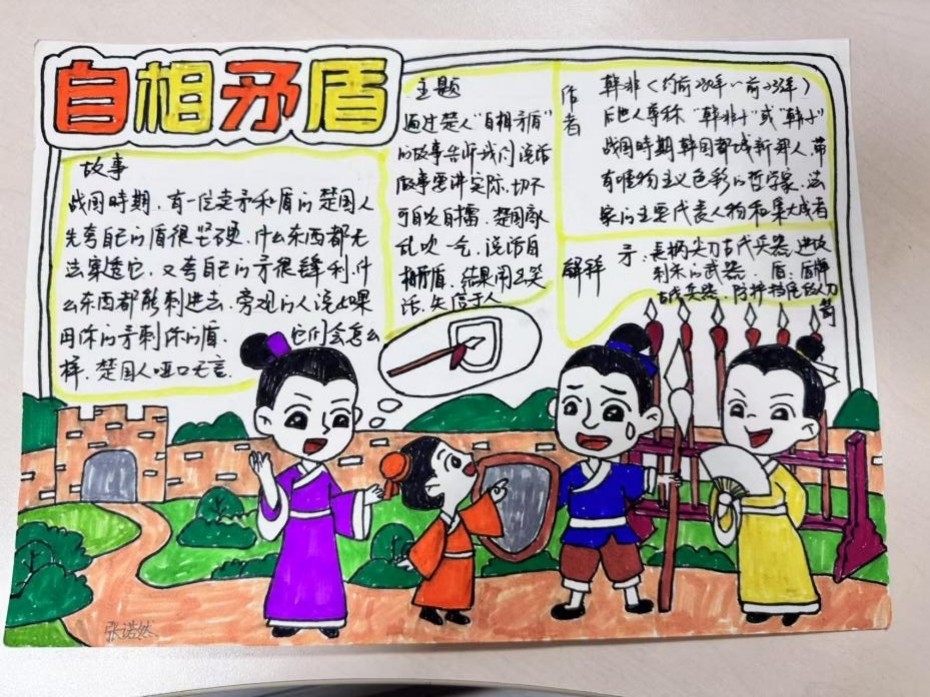 自相矛盾
故事
战国时期，有一位卖矛和盾的楚国人
先夸自己的盾很坚硬，什么东西都无
法穿透它，又夸自己的矛很锋利，什
么东西都能刺进去，旁观的人说如果
用你的矛刺你的盾， 它们会怎么
样，楚国人哑口无言．
主题
通过楚人“自相矛盾”
的故事告诉我们说话
做事要讲实际，切不
可自吹自擂，楚国商人
乱吹一气，说话自
相矛盾，结果闹出笑
话，失信于人
作者
韩非（约前280年～前233年）
后世人尊称“韩非子”或“韩子”
战国时期韩国都城新郑人，带
有唯物主义色彩的哲学家，法
家的主要代表人物和集大成者
解释
矛：长柄尖刀古代兵器，进攻
刺杀的武器． 盾：盾牌
古代兵器，防护挡住敌人刀
箭
张诺然